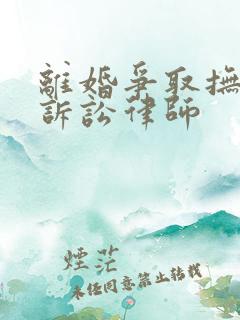 離婚爭取撫
訴訟律師
煙茫
未經同意禁止轉載